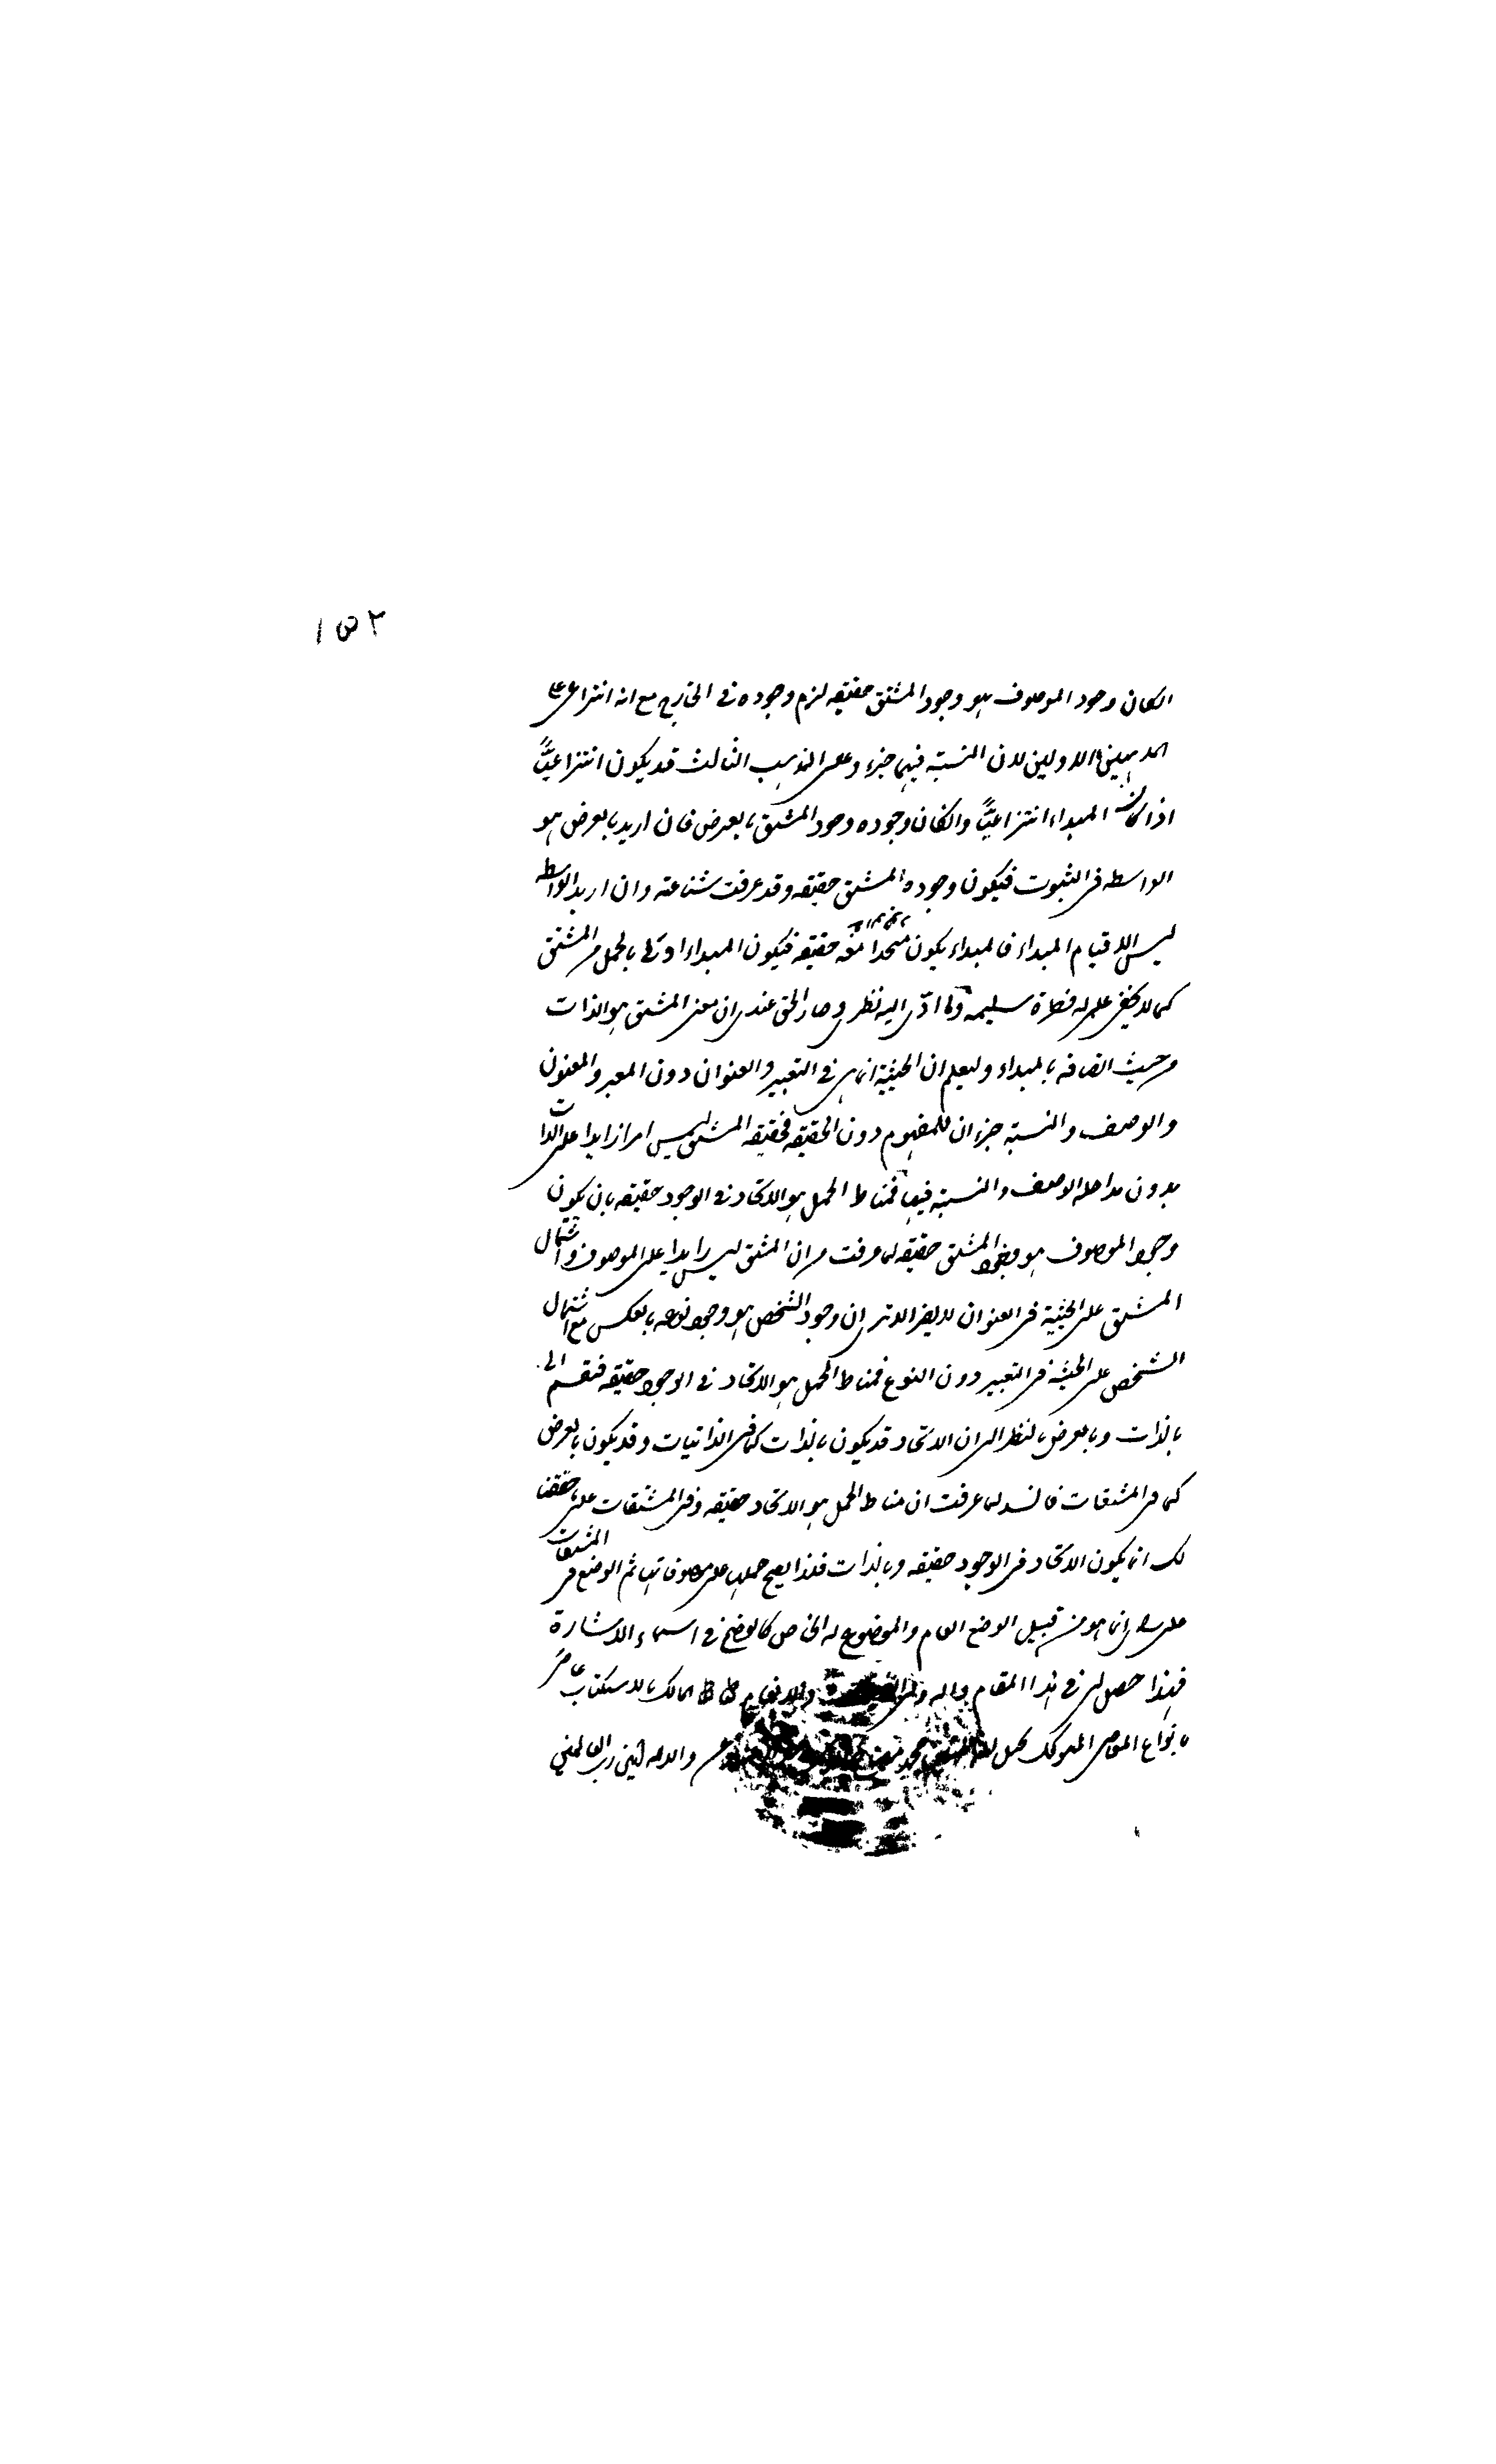 ١٥٢
الكان وجود الموصوف هو وجود المشتق حقيقه لزم وجوده في الخارج مع انه انتزاعي على
المذهبين الاولين لان النسبة فيهما جزء وعلى المذهب الثالث قد يكون انتزاعيًّا
اذا كان المبداء انتزاعيًّا والكان وجوده وجود المشتق بالعرض فان اريد بالعرض هو
الواسطه في الثبوت فيكون وجوده المشتق حقيقه وقد عرفت شناعته وان اريد الواسطه
ليس الا قيام المبداء فالمبداء يكون متحدا معه حقيقه فيكون المبداء اولى بالحمل من المشتق
كما لا يخفى على من له فطرة سليمه ولما ادّى اليه نظري وصار الحق عندي ان معنى المشتق هو الذات
من حيث اتصافه بالمبداء وليعلم ان الحيثية انما هي في التعبير والعنوان دون المعبر والمعنون
والوصف والنسبة جزءان للمفهوم دون الحقيقه فحقيقه المشتق ليس امرا زايدا على الذات
بدون مداخله الوصف والنسبة فيها فمناط الحمل هو الاتحاد في الوجود حقيقه بان يكون
وجود الموصوف هو وجود المشتق حقيقه لما عرفت من ان المشتق ليس زايدا على الموصوف واشتمال
المشتق على الحيثية في العنوان لا يضر الا ترى ان وجود الشخص هو وجود نوعه بالعكس مع اشتمال
الشخص على الحيثية في التعبير دون النوع فمناط الحمل هو الاتحاد في الوجود حقيقه فتقسيم الى
بالذات وبالعرض بالنظر الى ان الاتحاد قد يكون بالذات كما في الذاتيات وقد يكون بالعرض
كما في المشتقات فاسد لما عرفت ان مناط الحمل هو الاتحاد حقيقه وفي المشتقات على ما حققنا
لك انما يكون الاتحاد في الوجود حقيقه وبالذات فلذا يصح حملها على موصوفاتها ثم الوضع في المشتقات
على انما هو من قبيل الوضع العام والموضوع له الخاص كالوضع في اسماء الاشارة
فهذا حصل لي في هذا المقام
بانواع المعاصي والله ثيني رب العالمين